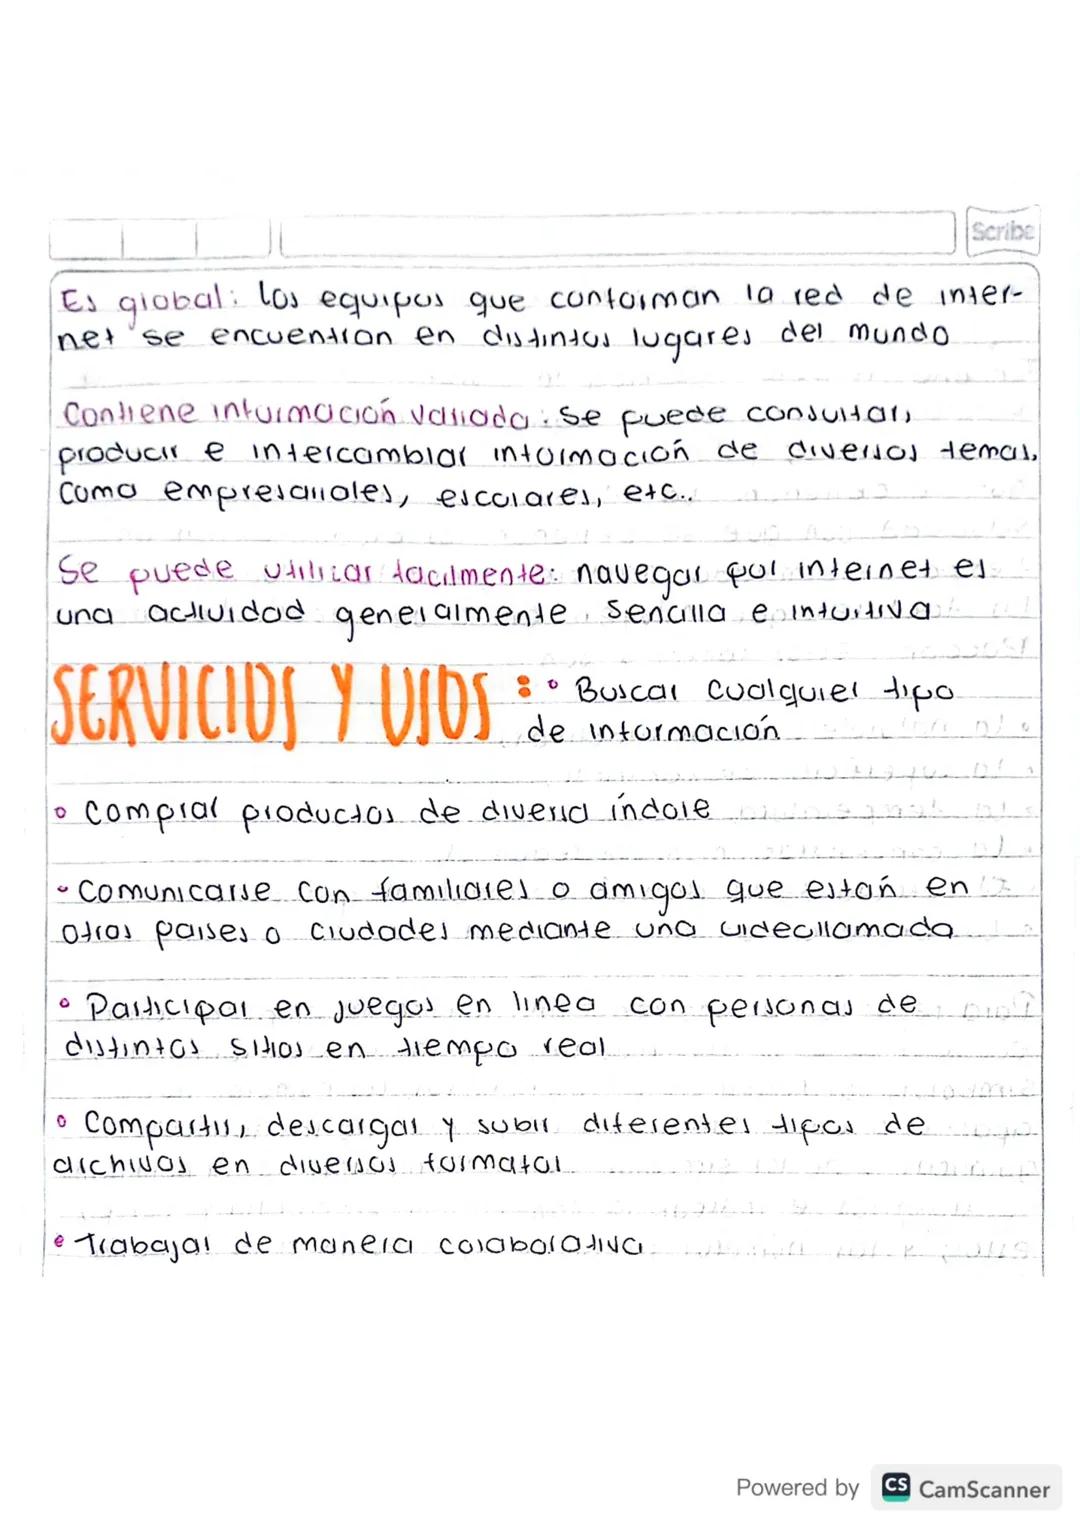 Scribe
Es global: los equipos que conforman la red de inter-
net se encuentran en distintos lugares del mundo
Contiene información variada: Se puede consultar,
producir e intercambiar información de diversos temas,
como empresariales, escolares, etc..
Se puede utilizar facilmente: navegar por internet es
una actividad generalmente sencilla e intuitiva
SERVICIOS Y USOS : • Buscar cualquier tipo
de información
• Comprar productos de diversa índole
• Comunicarse con familiares o amigos que están en
otros paises o ciudades mediante una videollamada
• Participar en juegos en linea con personas de
distintos sitios en tiempo real
• Compartir, descargar y subir diferentes tipos de
archivos en diversos formatos
• Trabajar de manera colaborativa
Powered by CS CamScanner